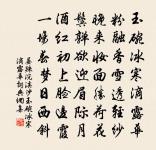 玉碗冰寒滴露華
粉融香雪透輕紗
晚來妝面勝荷花
鬢嚲欲迎眉際月
酒紅初上臉邊霞
一場春夢日西斜
晏殊浣溪沙玉碗冰寒
滴露華詞典網集